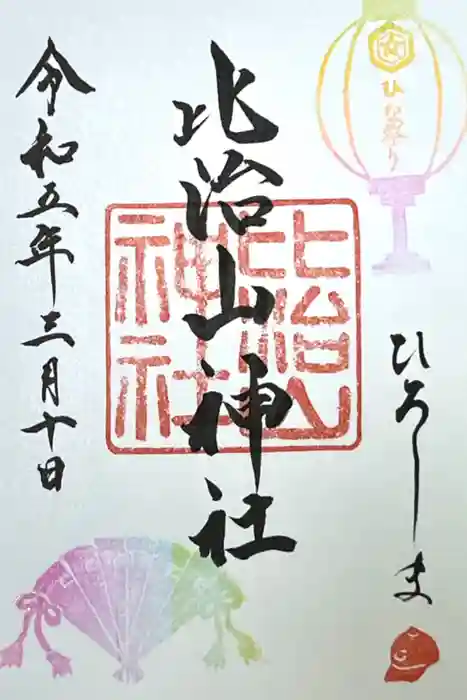 ひな祭り
ひろしま
比治山神社
比治山
神社
令和五年三月十日